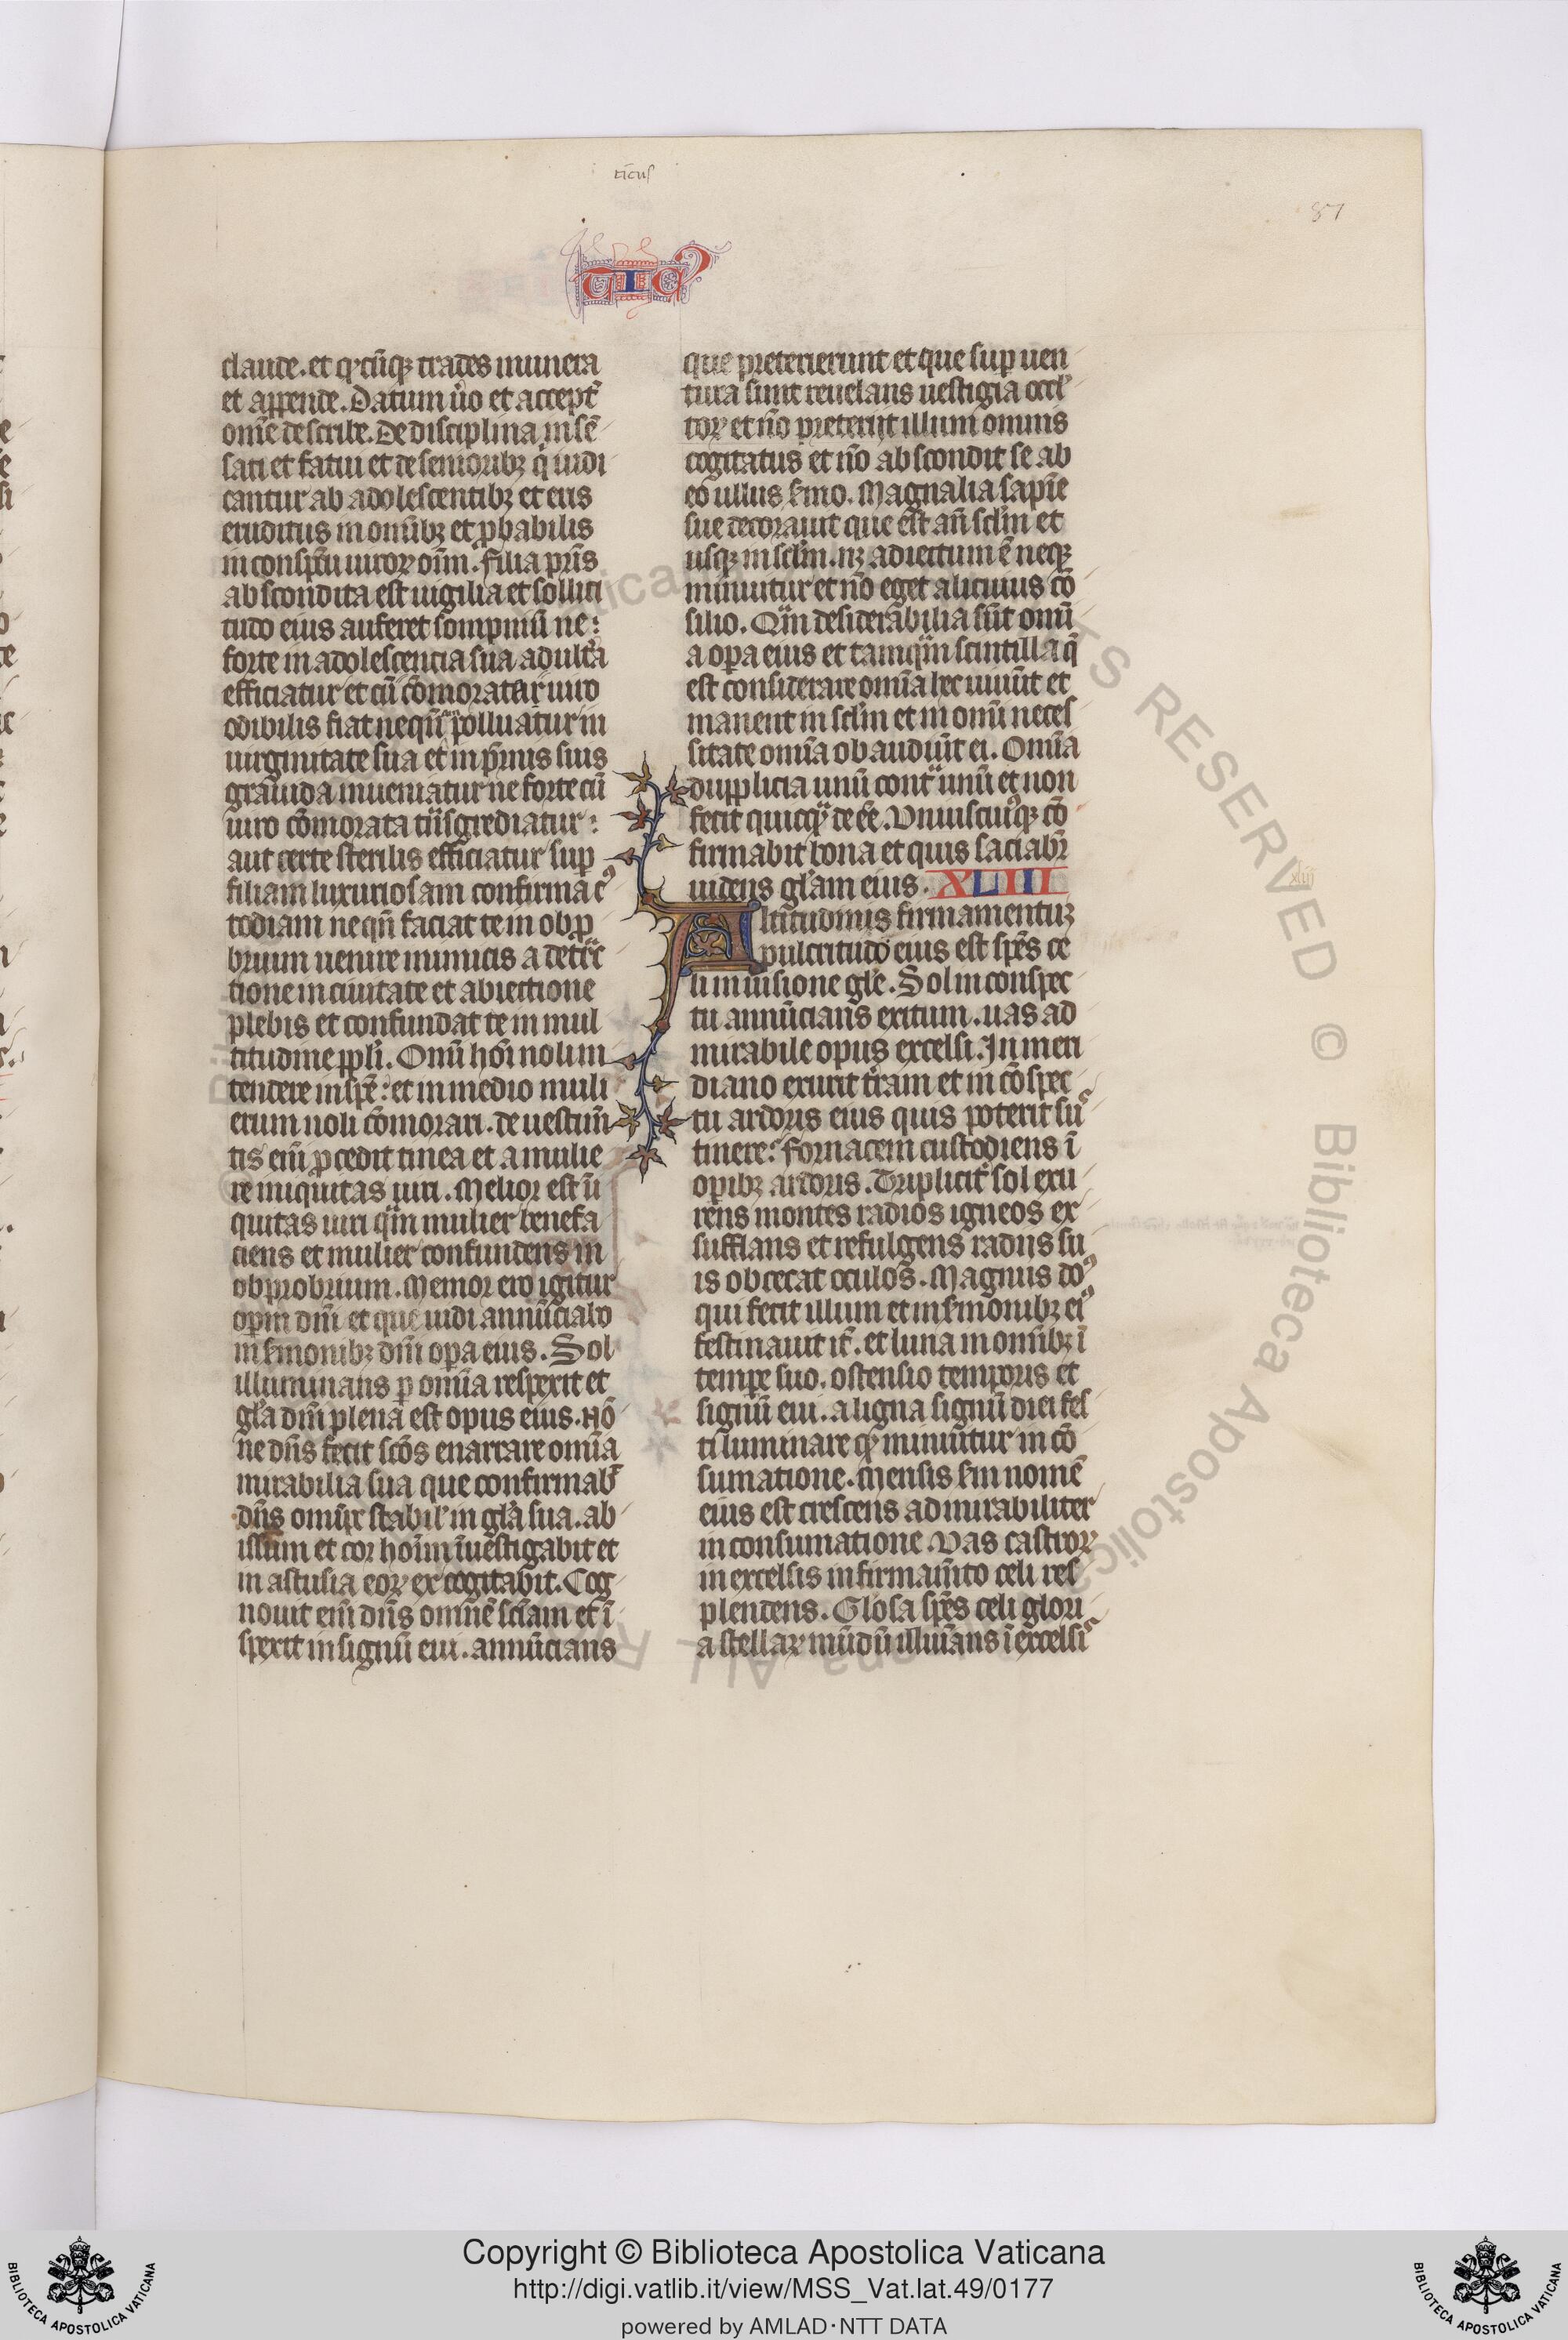 ticus
87
TIC9
claude. et qͦ cūq; trades munera
et appende. Datum ũo et accept̃
om̃e describe. De disciplina insẽ
sati et fatui et de senioribꝫ q̇ iudi
cantur ab adolescentibꝫ et eris
eruditus in om̃ibꝫ et ꝓbabilis
in conspc̃u uiroꝝ oĩm. Filia pr̃is
abscondita est uigilia et sollici
tudo eius auferet sompnum̃ ne
forte in adolescencia sua adult̃a
efficiatur et cũ c̃omoratar uiro
odibilis fiat neqñ polluatur in
uirginitate sua et in pr̃nis suis
grauida inueniatur ne forte cũ
uiro cõmorata tñsgrediatur
aut certe sterilis efficiatur sup
filiam luxuriosam confirma c9
todiam neqñ faciat te in obꝓ
brium uenire inimicis a det̃rc
tione in ciuitate et abiectione
plebis et confundat te in mul
titudine ppl̃i. Omũ hoĩ noli in
tendere in spẽ et in medio muli
erum noli c̃omorari. de uestim̃
tis eñi ꝓcedit tinea et a mulie
re iniquitas uiri. Melior est ñi
quitas uiri qm̃ mulier benefa
ciens et mulier confundens in
obprobrium. Memor ero igitur
oꝑm dñi et que uidi annũciabo
in ẜmonibꝫ dñi opa eius. Sol
illuminans ꝑ omĩa respexit et
gl̃a dñi plena est opus eius. Nõ
ne dñs fecit scõs enarrare omĩa
mirabilia sua que confirmab̃
dñs omĩps stabil' in gl̃a sua. ab
issum et cor hoĩm ĩuestigabit et
in astusia eoꝝ excogitabit. Cog
nouit eñi dñs omñe sciãm et ĩ
spexit in signũ eui. annũcians
que preterierunt et que sup uen
tura sunt reuelans uestigia occl'
toꝝ et ño preteriit illum omnis
cogitatus et ño abscondit se ab
eo ullus ẜmo. Magnalia sapĩe
sue decorauit que est añ scl̃m et
usq; in scl̃m. nꝫ adiectum ẽ neq;
minuitur et ño eget alicuius cõ
silio. Qm̃ desiderãbilia sũt omñi
a opa eius et tamqm̃ scintilla q̃
est considerare omĩa hec uiuũt et
manent in scl̃m et in omñi neces
sitate omĩa obaudiũt ei. Omĩa
dupplicia unũ cont̃ unũ et non
fecit quicqͣ deẽe. Vniuscuiꝰq; cõ
firmabit bona et quis saciabr̃
uidens gl̃am eius. XLIII
Altitudinis firmamentuꝫ
pulcritudo eius est spẽs ce
li in uisione gl̃e. Sol in conspec
tu annũcians exitum. uas ad
mirabile opus excelsi. In meri
diano exurit tr̃am et in cõspec
tu ardoris eius quis poterit su9
tinere. Fornacem custodiens ĩ
opibꝫ ardoris. Triplicit̃ sol exu
rens montes radios igneos ex
sufflans et refulgens radiis su
is obcecat oculos. Magnus do9
qui fecit illum et in ẜmonibꝫ ei9
festinauit it̃. et luna in omñibꝫ ĩ
tempe suo. ostensio temporis et
signũ eui. a ligna signũ diei fes
ti luminare qͩ minuitur in cõ
sumatione. Mensis ẜm nomẽ
eius est crescens admirabiliter
in consumatione. Vas castroꝝ
in excelsis in firmam̃to celi res
plendens. Glosa spẽs celi glori
a stellaꝝ mũdũ illuĩans ĩ excelsis
xliii
ALL RIGHTS RESERVED © Biblioteca Apostolica Vaticana
Copyright © Biblioteca Apostolica Vaticana
http://digi.vatlib.it/view/MSS_Vat.lat.49/0177
powered by AMLAD·NTT DATA
BIBLIOTECA APOSTOLICA VATICANA
BIBLIOTECA APOSTOLICA VATICANA